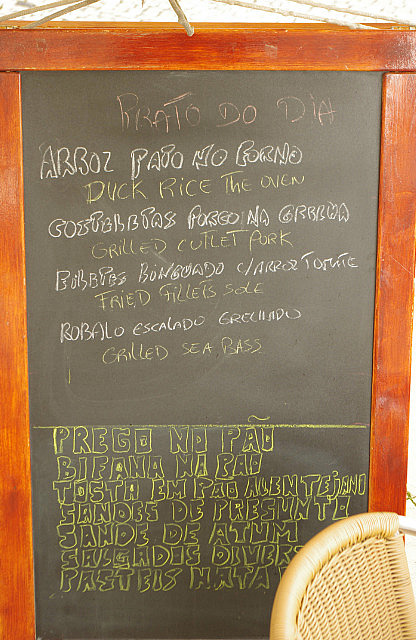 PRATO DO DIA
ARROZ PATO NO FORNO
DUCK RICE THE OVEN
COSTELETAS PORCO NA GRELHA
GRILLED CUTLET PORK
FILETES C/ARROZ TOMATE
FRIED FILLETS SOLE
ROBALO ESCALADO GRELHADO
GRILLED SEA BASS
PREGO NO PÃO
BIFANA NO PAO
TOSTA EM PÃO ALENTEJANO
SANDES DE PRESUNTO
SANDE DE ATUM
SALGADOS DIVERS
PASTEIS NATA